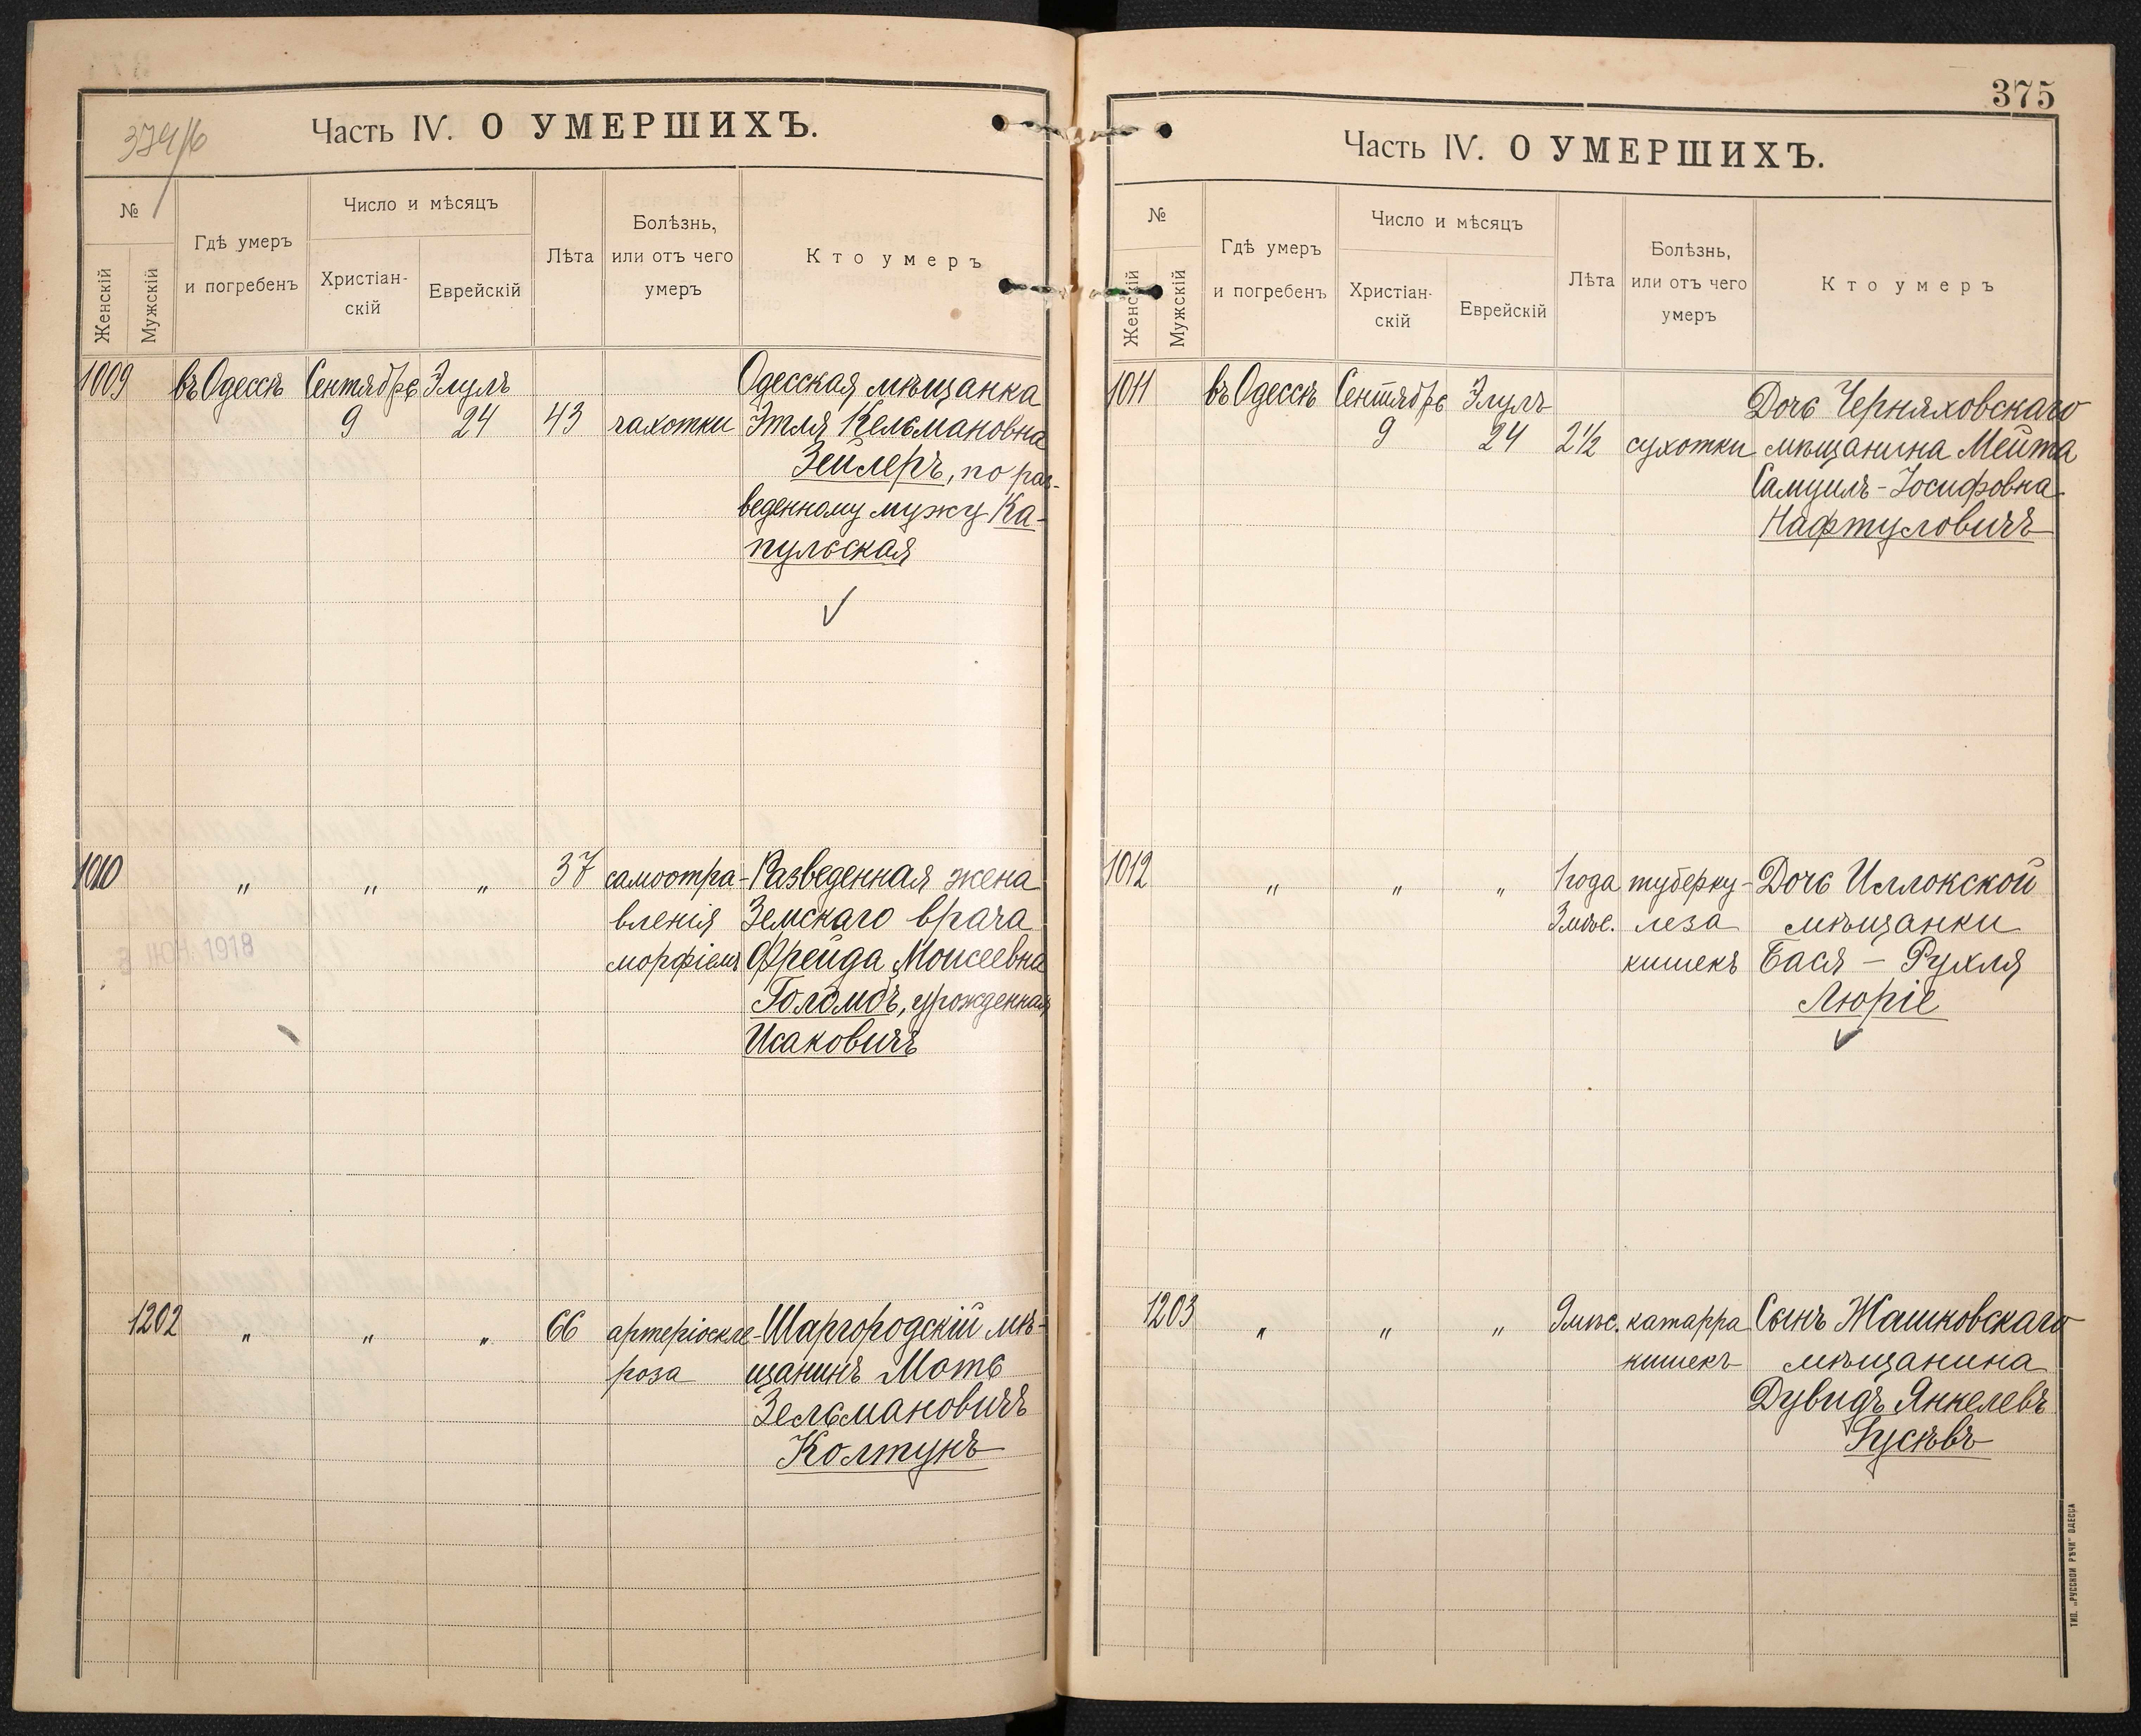 374/б
Часть IV. О УМЕРШИХЪ.
№
Женскій
Мужскій
Гдѣ умеръ
и погребенъ
Число и мѣсяцъ
Христіан-
скій
Еврейскій
Лѣта
Болѣзнь,
или отъ чего
умеръ
Кто умеръ
1009 въ Одессѣ Сентябрь Элулъ Одесская мѣщанка
9 24 43 чахотки Этля Кельмановна
Зейлеръ, по раз-
веденному мужу Ка-
пульская
1010 " " " 37 самоотра- Разведенная жена
вленія Земскаго врача
морфіемъ Фрейда Моисеевна
3 ІЮН 1918
Голомбъ, урожденная
Исаковичъ
1202 " " " 66 артеріоскле- Шаргородскій мѣ-
роза щанинъ Моть
Зельмановичъ
Колтунъ
375
Часть IV. О УМЕРШИХЪ.
№
Женскій
Мужскій
Гдѣ умеръ
и погребенъ
Число и мѣсяцъ
Христіан-
скій
Еврейскій
Лѣта
Болѣзнь,
или отъ чего
умеръ
Кто умеръ
1011 въ Одессѣ Сентябрь Элулъ Дочь Черняховскаго
9 24 2½ сухотки мѣщанина Мейта
Самуилъ-Іосифовна
Нафтуловичъ
1012 " " " 1 года туберку- Дочь Иллокской
3 мѣс. леза мѣщанки
кишекъ Бася - Рухля
Люріе
1203 " " " 9 мѣс. катарра Сынъ Жашковскаго
кишекъ мѣщанина
Дувидъ Янкелевъ
Гусѣвъ
ТИП. „РУССКОЙ РѢЧИ" ОДЕССА